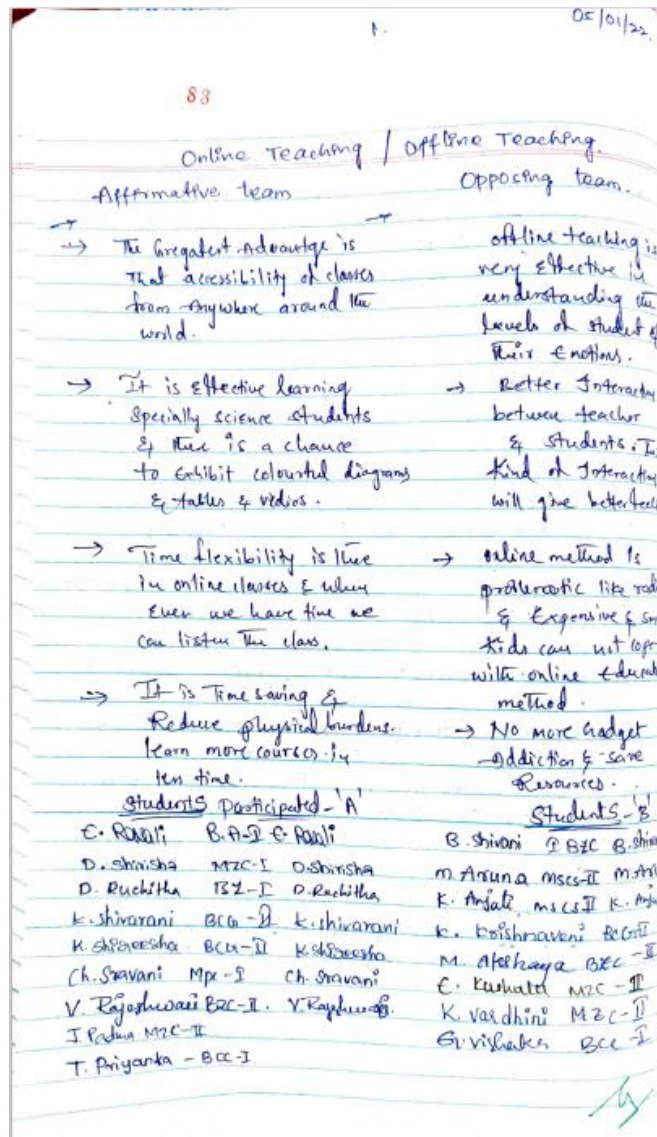 05/01/22.
1.
83
Online Teaching / Offline Teaching.
Affirmative team
→ The Gregatest Advantge is
that accessibility of classes
from Anywhere around the
world.
→ It is effective learning
specially science students
& there is a chance
to Exhibit colourful diagrams
& tables & vidios.
→ Time flexibility is there
in online classes & when
Ever we have time we
can listen the class.
→ It is Time saving &
Reduce physical burdens.
learn more courses in
less time.
Students Participated - 'A'
E. Ravali B.A-I E. Ravali
D. Shirisha MZC-I D. Shirisha
D. Ruchitha BZ-I D. Ruchitha
K. Shivarani BCG-II K. Shivarani
K. Shireesha BCG-II K. Shireesha
Ch. Sravani MPC-I Ch. Sravani
V. Rajeshwari BZC-II. V. Rajeshwari
J Padma MZC-II
T. Priyanka - BCC-I
Opposing team.
→ offline teaching is
very Effective in
understanding the
levels of student of
their Emotions.
→ Better Interactin
between teacher
& students.
Kind of Interactin
will give better
→ online method is
like
& Expensive &
kids can not
with online Educat
method.
→ No more Gadget
Addiction & save
Resources.
Students - 'B'
B. Shivani I BZC B. Shiva
M. Aruna MSCS-II M. Aru
K. Anjali MSCS II K. Anja
K. Krishnaveni BCG II
M. Akshaya BZC-II
E. MZC-II
K. Vardhini MZC-II
BCC-I